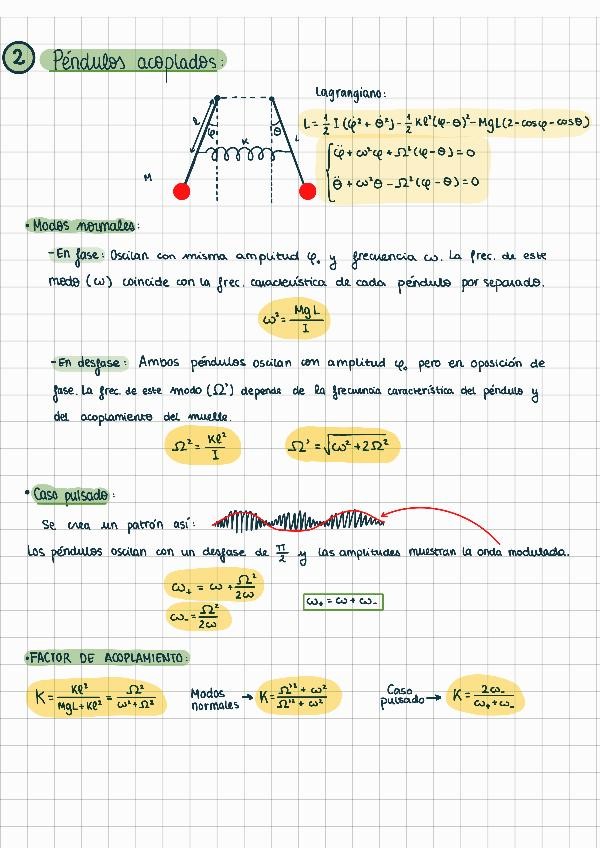 2 Péndulos acoplados:
Lagrangiano:
L = 1/2 I (φ̇² + θ̇²) - 1/2 Kl² (φ-θ)² - MgL (2 - cosφ - cosθ)
φ̈ + ω²φ + Ω²(φ-θ) = 0
θ̈ + ω²θ - Ω²(φ-θ) = 0
l φ K θ L
M
• Modos normales:
- En fase: Oscilan con misma amplitud φ₀ y frecuencia ω. La frec. de este
modo (ω) coincide con la frec. característica de cada péndulo por separado.
ω² = MgL/I
- En desfase: Ambos péndulos oscilan con amplitud φ₀ pero en oposición de
fase. La frec. de este modo (Ω') depende de la frecuencia característica del péndulo y
del acoplamiento del muelle.
Ω² = Kl²/I Ω' = √(ω² + 2Ω²)
• Caso pulsado:
Se crea un patrón así:
Los péndulos oscilan con un desfase de π/2 y las amplitudes muestran la onda modulada.
ω₊ = ω + Ω²/2ω
ω₋ = Ω²/2ω
ω₊ = ω + ω₋
• FACTOR DE ACOPLAMIENTO:
K = Kl²/(MgL + Kl²) = Ω²/(ω² + Ω²) Modos normales → K = (Ω'² + ω²)/(Ω'² + ω²) Caso pulsado → K = 2ω₋/(ω₊ + ω₋)